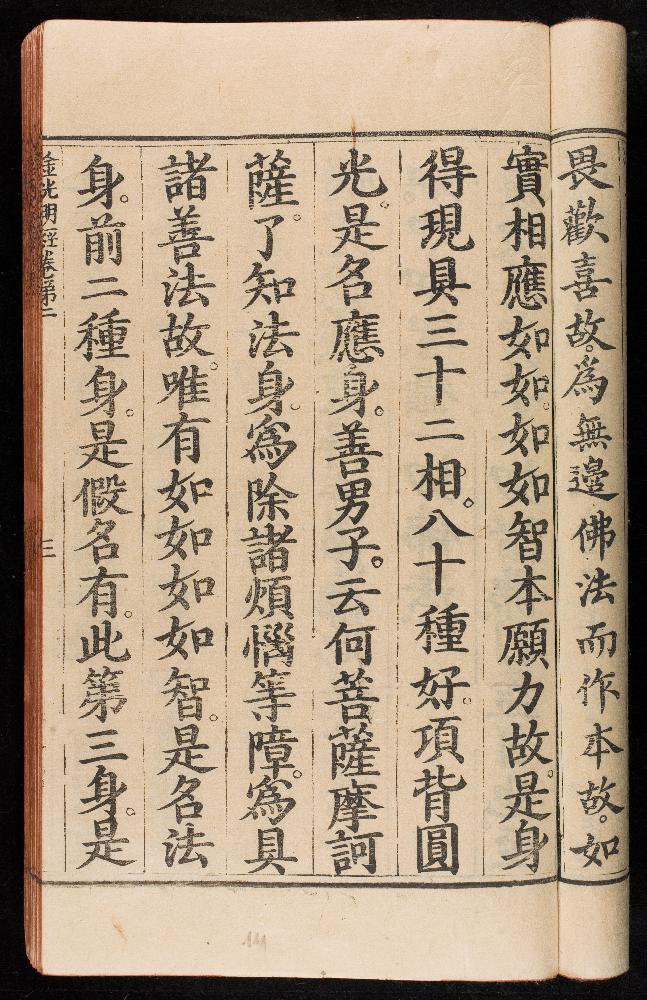 畏歡喜故。為無邊佛法而作本故。如
實相應如如。如如智本願力故。是身
得現具三十二相。八十種好。項背圓
光。是名應身。善男子。云何菩薩摩訶
薩。了知法身。為除諸煩惱等障。為具
諸善法故。唯有如如如如智。是名法
身。前二種身。是假名有。此第三身。是
金光明經卷第二
三